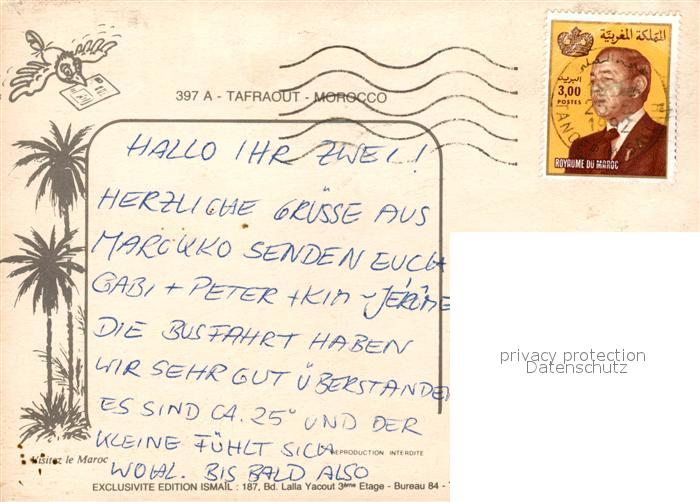 397 A - TAFRAOUT - MOROCCO
المملكة المغربية
البريد
3,00
POSTES
ROYAUME DU MAROC
HALLO IHR ZWEI!
HERZLICHE GRÜSSE AUS
MAROKKO SENDEN EUCH
GABI + PETER + KIM - JÉRÔME
DIE BUSFAHRT HABEN
WIR SEHR GUT ÜBERSTANDEN
ES SIND CA. 25° UND DER
KLEINE FÜHLT SICH
WOHL. BIS BALD ALSO
privacy protection
Datenschutz
REPRODUCTION INTERDITE
Visitez le Maroc
EXCLUSIVITE EDITION ISMAIL : 187, Bd. Lalla Yacout 3ème Etage - Bureau 84 -